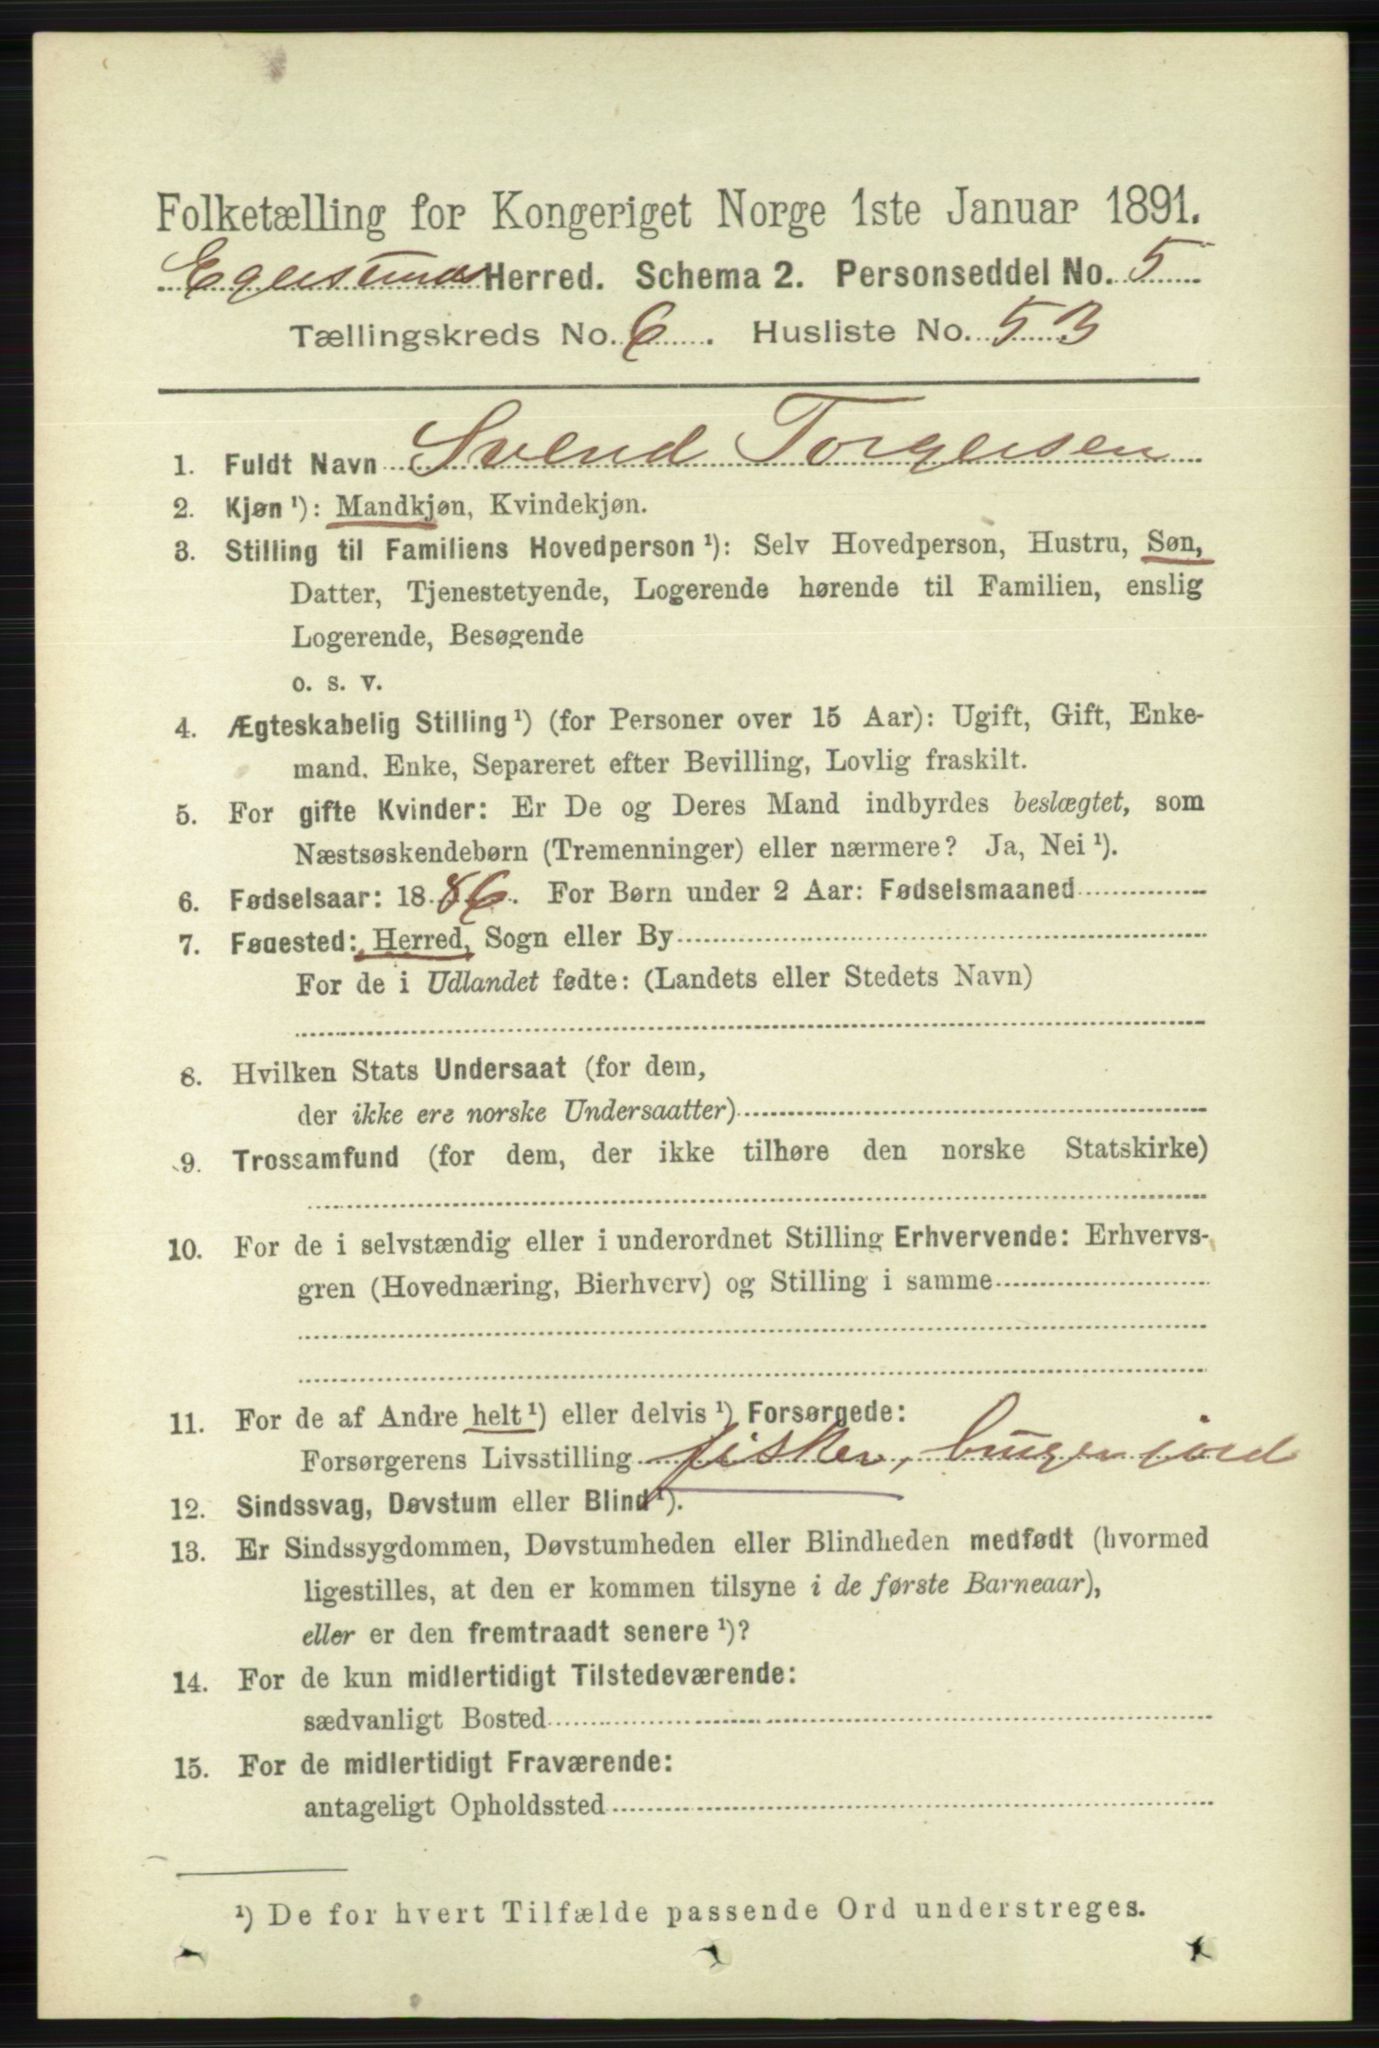 Folketælling for Kongeriget Norge 1ste Januar 1891.
Egersund Herred. Schema 2. Personseddel No. 5
Tællingskreds No. 6. Husliste No. 53
1. Fuldt Navn Svend Torgersen
2. Kjøn ¹): Mandkjøn, Kvindekjøn.
3. Stilling til Familiens Hovedperson ¹): Selv Hovedperson, Hustru, Søn,
Datter, Tjenestetyende, Logerende hørende til Familien, enslig
Logerende, Besøgende
o. s. v.
4. Ægteskabelig Stilling ¹) (for Personer over 15 Aar): Ugift, Gift, Enke-
mand. Enke, Separeret efter Bevilling, Lovlig fraskilt.
5. For gifte Kvinder: Er De og Deres Mand indbyrdes beslægtet, som
Næstsøskendebørn (Tremenninger) eller nærmere? Ja, Nei ¹).
6. Fødselsaar: 1886. For Børn under 2 Aar: Fødselsmaaned
7. Fødested: Herred, Sogn eller By
For de i Udlandet fødte: (Landets eller Stedets Navn)
8. Hvilken Stats Undersaat (for dem,
der ikke ere norske Undersaatter)
9. Trossamfund (for dem, der ikke tilhøre den norske Statskirke)
10. For de i selvstændig eller i underordnet Stilling Erhvervende: Erhvervs-
gren (Hovednæring, Bierhverv) og Stilling i samme
11. For de af Andre helt ¹) eller delvis ¹) Forsørgede:
Forsørgerens Livsstilling fisker, bruger jord
12. Sindssvag, Døvstum eller Blind ¹).
13. Er Sindssygdommen, Døvstumheden eller Blindheden medfødt (hvormed
ligestilles, at den er kommen tilsyne i de første Barneaar),
eller er den fremtraadt senere ¹)?
14. For de kun midlertidigt Tilstedeværende:
sædvanligt Bosted
15. For de midlertidigt Fraværende:
antageligt Opholdssted
¹) De for hvert Tilfælde passende Ord understreges.